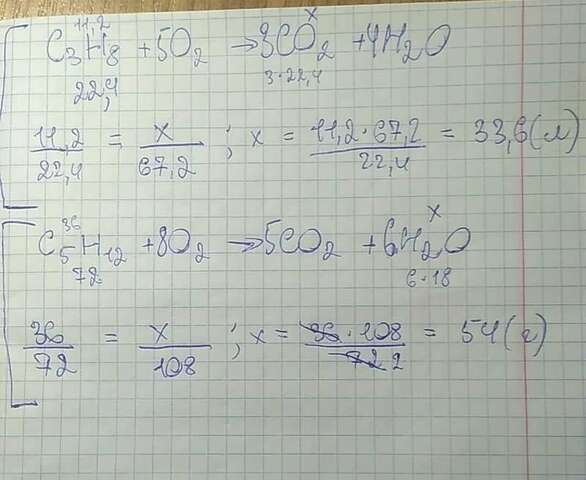 11,2 x
C3H8 +5O2 →3CO2 +4H2O
22,4 3·22,4
11,2/22,4 = x/67,2 ; x = 11,2·67,2/22,4 = 33,6(л)
36 x
C5H12 +8O2 →5CO2 +6H2O
72 6·18
36/72 = x/108 ; x = 36·108/72 2 = 54(г)